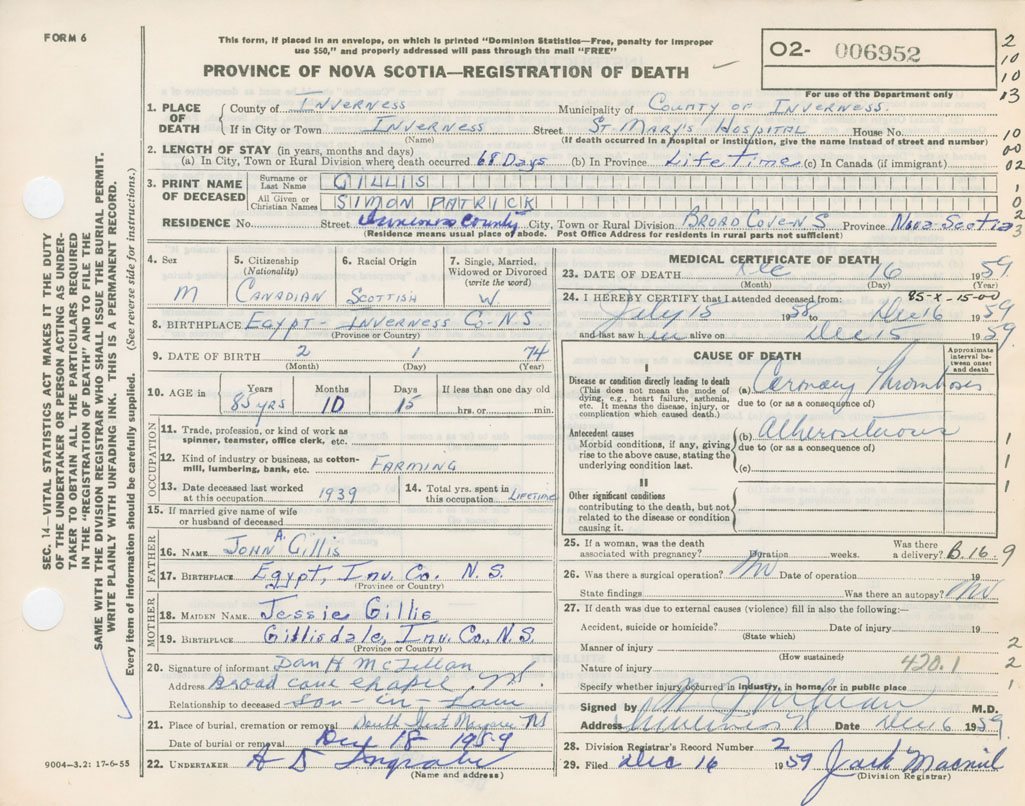 FORM 6
This form, if placed in an envelope, on which is printed "Dominion Statistics—Free, penalty for improper
use $50," and properly addressed will pass through the mail "FREE"
PROVINCE OF NOVA SCOTIA—REGISTRATION OF DEATH
O2- 006952
For use of the Department only
2
10
10
13
1. PLACE OF DEATH
County of Inverness Municipality of County of Inverness.
If in City or Town Inverness Street St Mary's Hospital House No.
(Name) (If death occurred in a hospital or institution, give the name instead of street and number)
10
00
02
2. LENGTH OF STAY (in years, months and days)
(a) In City, Town or Rural Division where death occurred 68 Days (b) In Province Life time (c) In Canada (if immigrant)
3. PRINT NAME OF DECEASED
Surname or Last Name GILLIS
All Given or Christian Names SIMON PATRICK
1
0
2
3
RESIDENCE No. Street Inverness County City, Town or Rural Division Broad Cove N S Province Nova Scotia
(Residence means usual place of abode. Post Office Address for residents in rural parts not sufficient)
4. Sex M
5. Citizenship (Nationality) Canadian
6. Racial Origin Scottish
7. Single, Married, Widowed or Divorced (write the word) W
8. BIRTHPLACE Egypt - Inverness Co - N S.
(Province or Country)
9. DATE OF BIRTH 2 1 74
(Month) (Day) (Year)
10. AGE in Years 85 yrs Months 10 Days 15 If less than one day old hrs. or min.
OCCUPATION
11. Trade, profession, or kind of work as spinner, teamster, office clerk, etc.
12. Kind of industry or business, as cotton-mill, lumbering, bank, etc. Farming
13. Date deceased last worked at this occupation 1939
14. Total yrs. spent in this occupation Lifetime
15. If married give name of wife or husband of deceased
FATHER
16. Name John A. Gillis
17. Birthplace Egypt, Inv. Co. N. S.
(Province or Country)
MOTHER
18. Maiden Name Jessie Gillis
19. Birthplace Gillisdale, Inv. Co., N. S.
(Province or Country)
20. Signature of informant Dan H McLellan
Address Broad Cove Chapel N S.
Relationship to deceased Son-in-Law
21. Place of burial, cremation or removal South West Margaree NS
Date of burial or removal Dec 18 1959
22. UNDERTAKER A D
(Name and address)
9004—3.2: 17-6-55
MEDICAL CERTIFICATE OF DEATH
23. DATE OF DEATH Dec 16 1959.
(Month) (Day) (Year)
24. I HEREBY CERTIFY that I attended deceased from: 85-X-15-00
July 15 1958 to Dec 16 1959
and last saw him alive on Dec 15 1959.
CAUSE OF DEATH
Approximate interval between onset and death
I
Disease or condition directly leading to death
(This does not mean the mode of dying, e.g., heart failure, asthenia, etc. It means the disease, injury, or complication which caused death.)
(a) Coronary Thrombosis
due to (or as a consequence of)
Antecedent causes
Morbid conditions, if any, giving rise to the above cause, stating the underlying condition last.
(b)
due to (or as a consequence of)
(c)
1
1
1
II
Other significant conditions contributing to the death, but not related to the disease or condition causing it.
25. If a woman, was the death associated with pregnancy? Duration weeks. Was there a delivery? B.16.9
26. Was there a surgical operation? No Date of operation 19
State findings Was there an autopsy? No
27. If death was due to external causes (violence) fill in also the following:—
Accident, suicide or homicide? Date of injury 19
(State which)
Manner of injury 2
(How sustained)
Nature of injury 420.1 2
Specify whether injury occurred in industry, in home, or in public place 1
Signed by M.D.
Address Inverness Date Dec 16 1959.
28. Division Registrar's Record Number 2
29. Filed Dec 16 1959 Jack Macneil
(Division Registrar)
SEC. 14—VITAL STATISTICS ACT MAKES IT THE DUTY
OF THE UNDERTAKER OR PERSON ACTING AS UNDER-
TAKER TO OBTAIN ALL THE PARTICULARS REQUIRED
IN THE "REGISTRATION OF DEATH" AND TO FILE THE
SAME WITH THE DIVISION REGISTRAR WHO SHALL ISSUE THE BURIAL PERMIT.
WRITE PLAINLY WITH UNFADING INK. THIS IS A PERMANENT RECORD.
Every item of information should be carefully supplied. (See reverse side for instructions.)